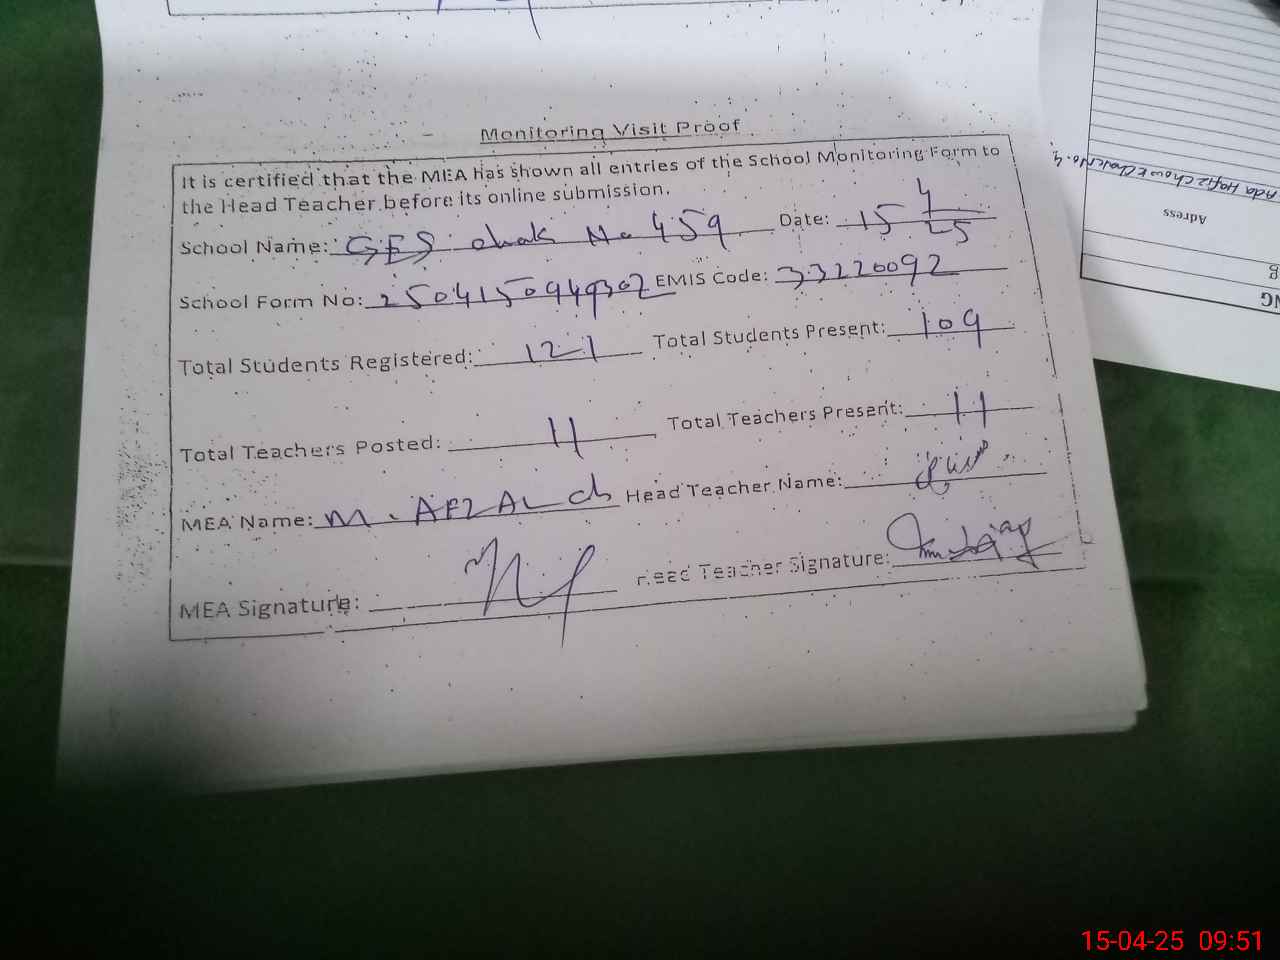 Monitoring Visit Proof
It is certified that the MEA has shown all entries of the School Monitoring Form to
the Head Teacher before its online submission.
School Name: GES chak No 459 Date: 15 4/25
School Form No: 2504150949302 EMIS Code: 33220092
Total Students Registered: 121 Total Students Present: 109
Total Teachers Posted: 11 Total Teachers Present: 11
MEA Name: M. AFZAL ch Head Teacher Name:
MEA Signature: Head Teacher Signature:
Adress
15-04-25 09:51